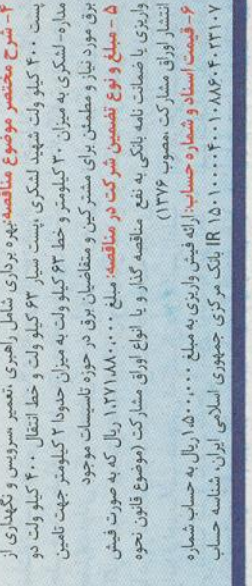 ۴-شرح مختصر موضوع مناقصه: بهره برداری شامل راهبری ،تعمیر ،سرویس و نگهداری از
پست ۴۰۰ کیلو ولت شهید لشگری ،پست سیار ۶۳ کیلو ولت و خط انتقال ۴۰۰ کیلو ولت دو
مداره- لشگری به میزان ۳۰ کیلومتر و خط ۶۳ کیلو ولت به میزان حدودا ۲ کیلومتر جهت تامین
برق مورد نیاز و مطمئن برای مشترکین و متقاضیان برق در حوزه تاسیسات موجود
۵- مبلغ و نوع تضمین شرکت در مناقصه: مبلغ ۱،۲۷۱،۸۸۰،۰۰۰ ریال که به صورت فیش
واریزی یا ضمانت نامه بانکی به نفع مناقصه گذار و یا انواع اوراق مشارکت (موضوع قانون نحوه
انتشار اوراق مشارکت ،مصوب ۱۳۷۶)
۶- قیمت اسناد و شماره حساب: ارائه فیش واریزی به مبلغ ۱،۵۰۰،۰۰۰ ریال به حساب شماره
IR ۱۵۰۱۰۰۰۰۴۰۰۱۰۸۸۶۰۴۰۲۳۱۰۷ بانک مرکزی جمهوری اسلامی ایران، شناسه حساب